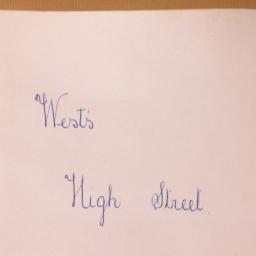 West's
High Street.